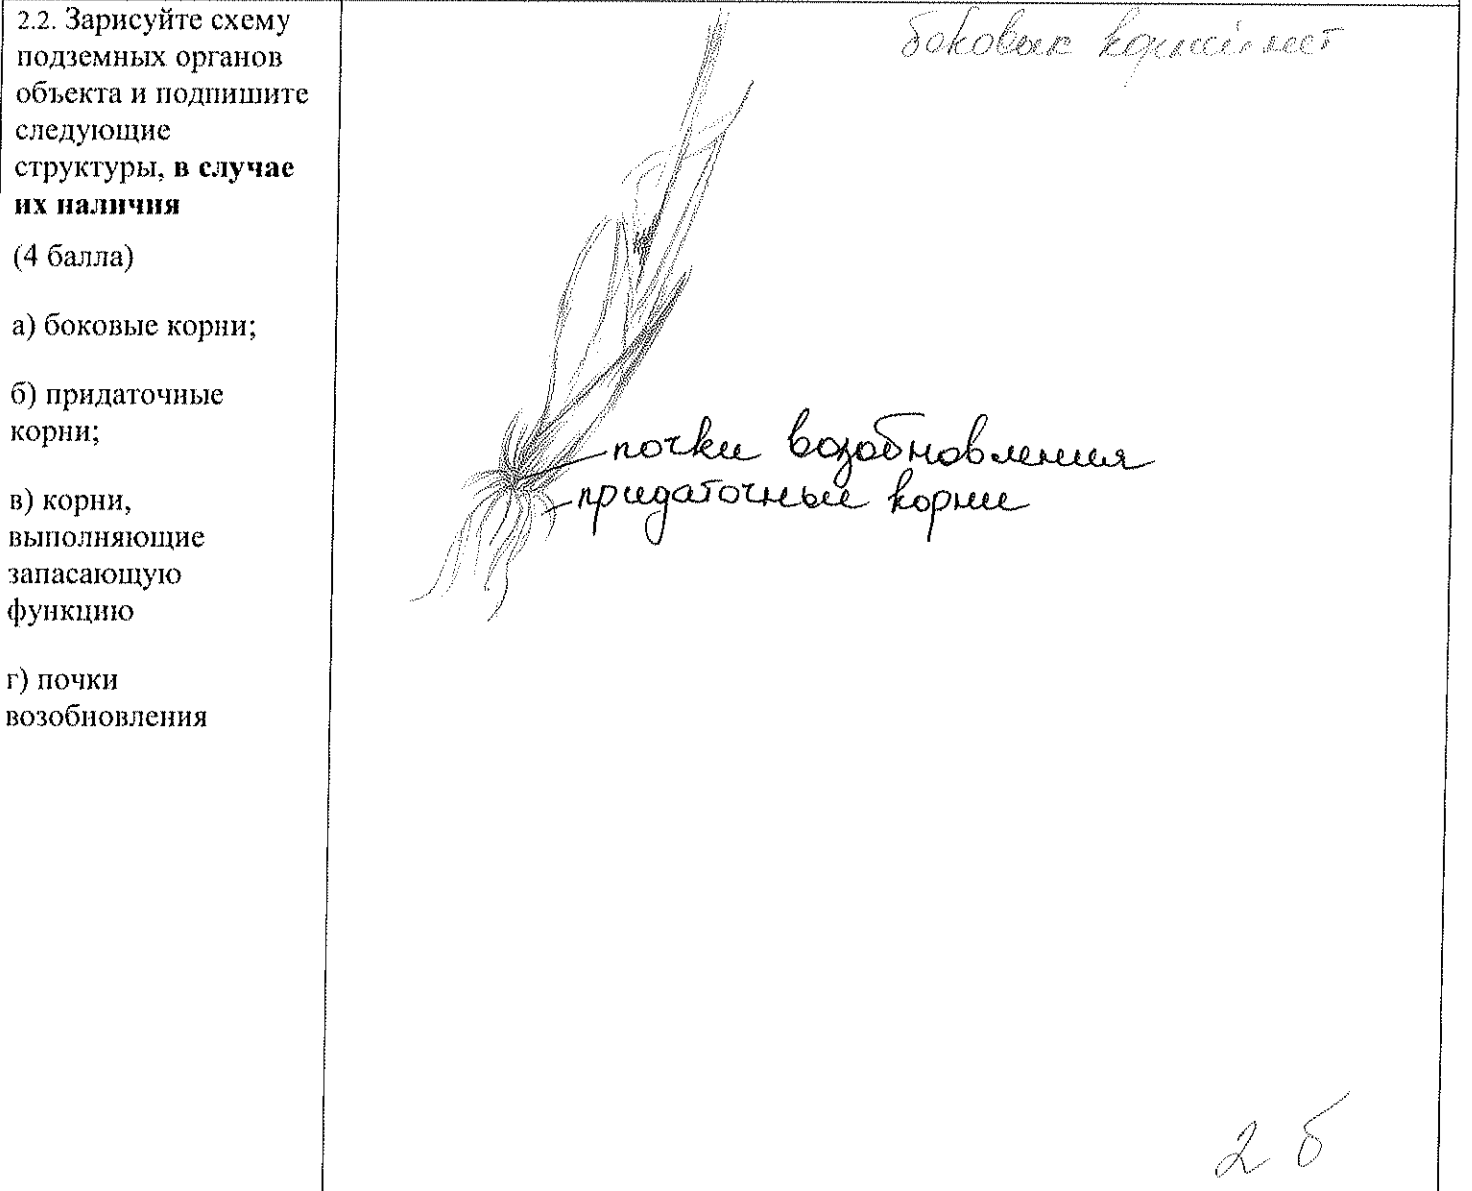 2.2. Зарисуйте схему
подземных органов
объекта и подпишите
следующие
структуры, в случае
их наличия
(4 балла)
а) боковые корни;
б) придаточные
корни;
в) корни,
выполняющие
запасающую
функцию
г) почки
возобновления
боковых корней нет
почки возобновления
придаточные корни
2 б